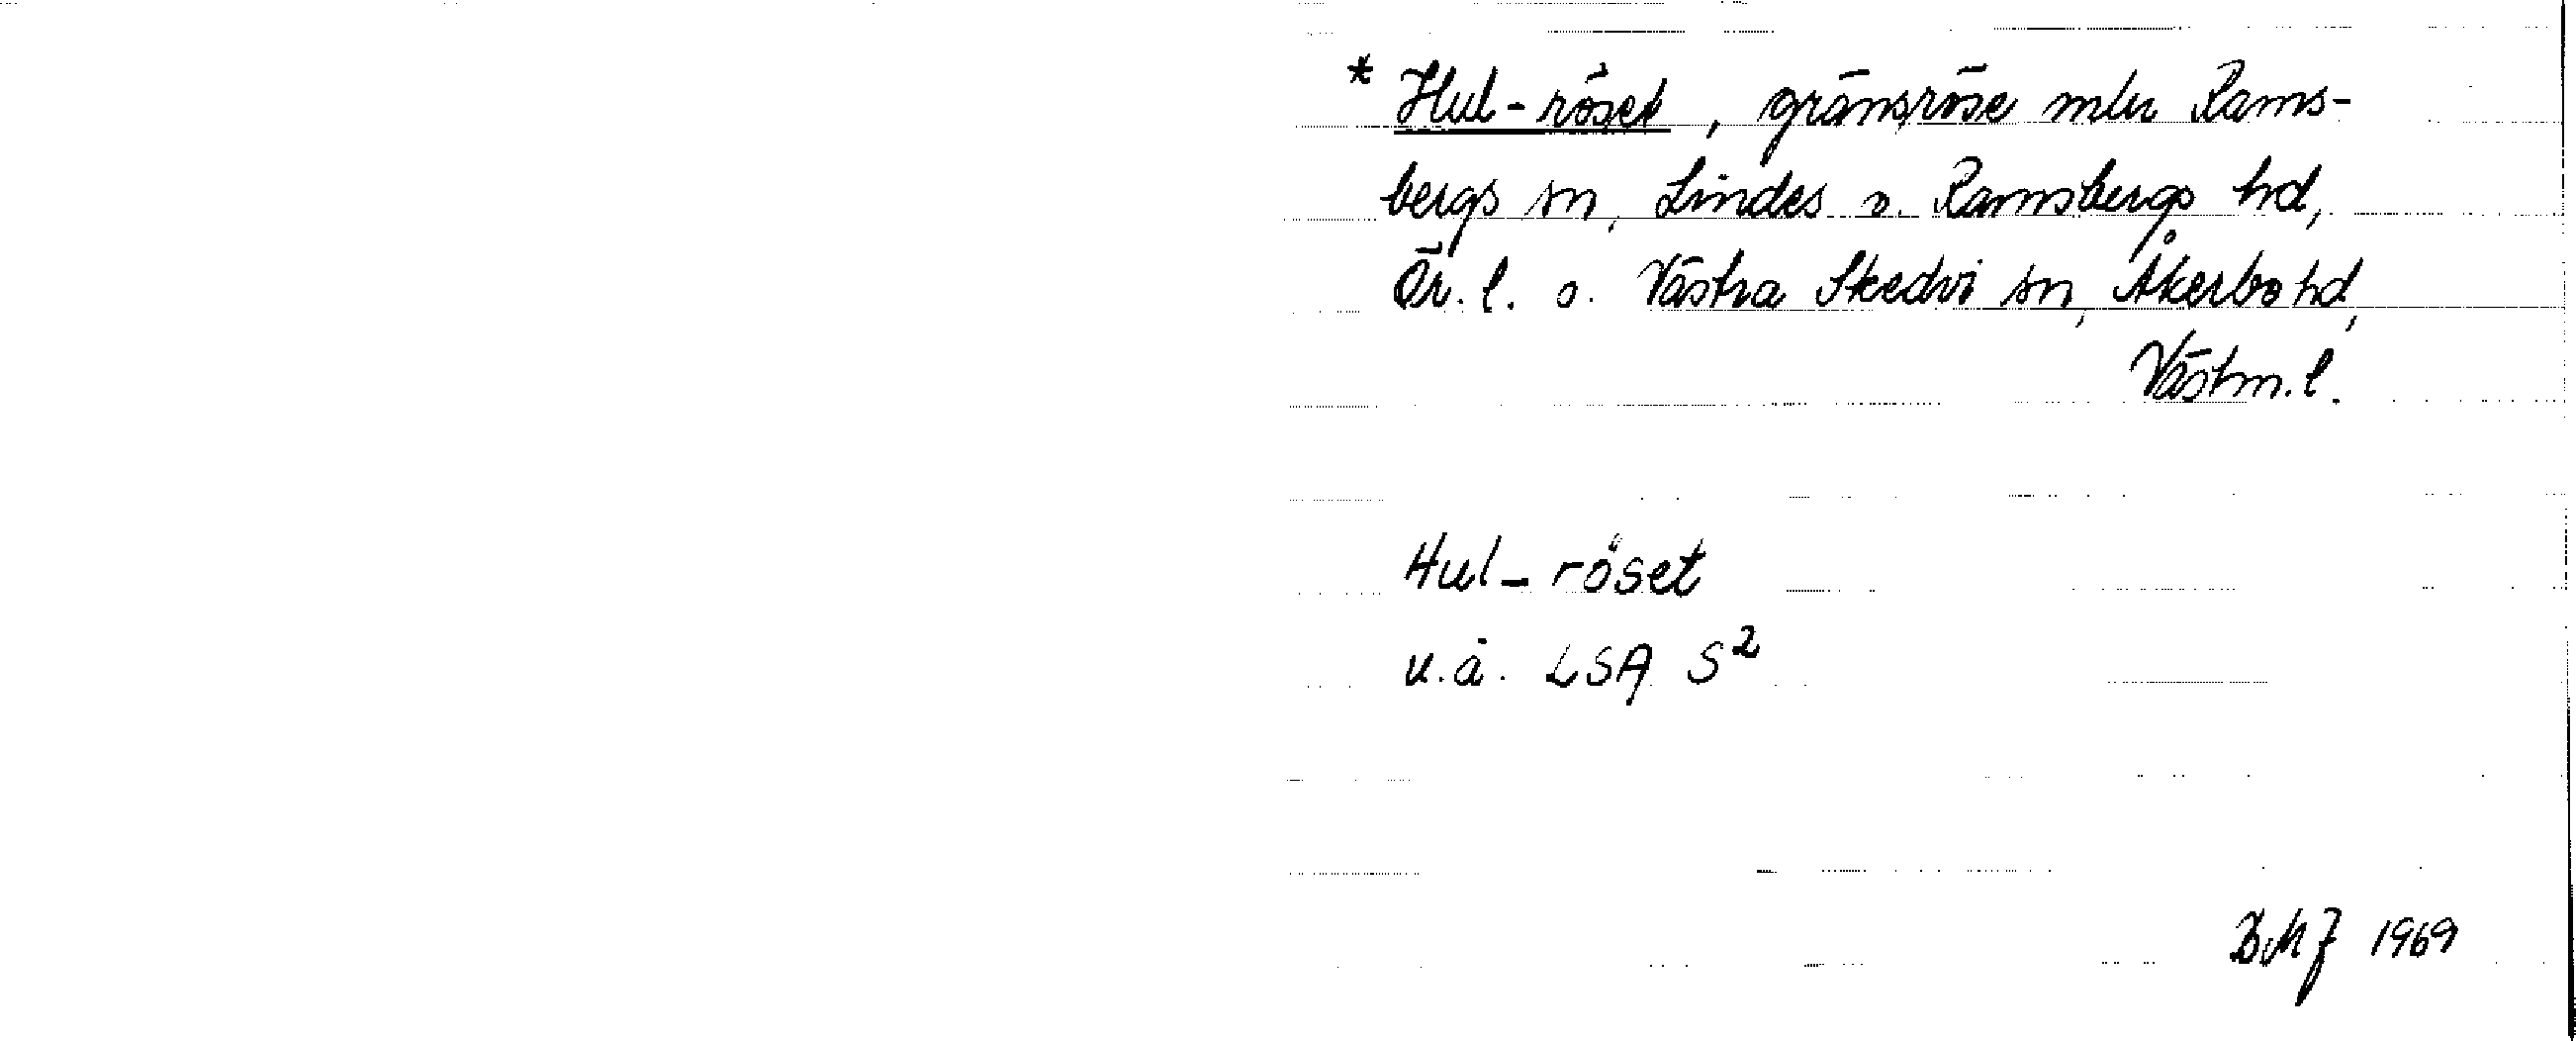 * Hul-röset, gränsröse mln Rams-
bergs sn, Lindes o. Ramsbergs hd,
Ör. l. o. Västra Skedvi sn, Åkerbo hd,
Västm. l.
Hul-röset
u.å. LSA S²
BMJ 1969